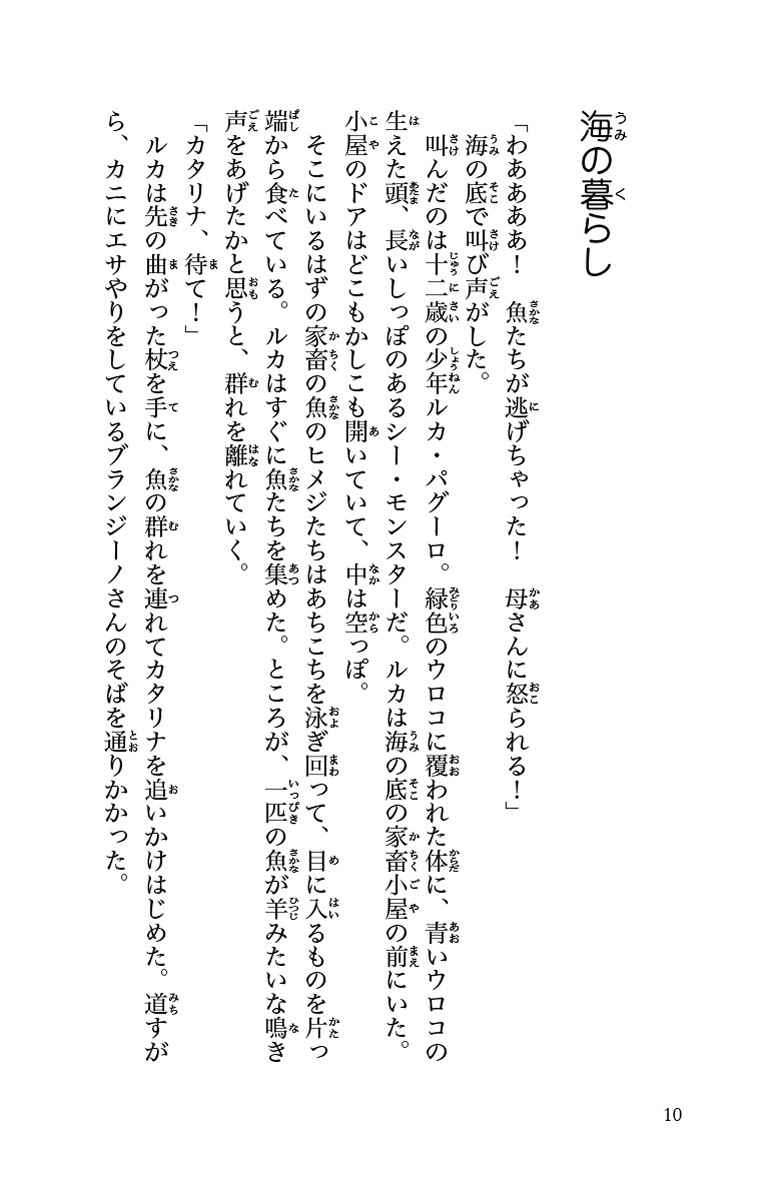 海の暮らし
「わああああ！　魚たちが逃げちゃった！　母さんに怒られる！」
　海の底で叫び声がした。
　叫んだのは十二歳の少年ルカ・パグーロ。緑色のウロコに覆われた体に、青いウロコの
生えた頭、長いしっぽのあるシー・モンスターだ。ルカは海の底の家畜小屋の前にいた。
小屋のドアはどこもかしこも開いていて、中は空っぽ。
　そこにいるはずの家畜の魚のヒメジたちはあちこちを泳ぎ回って、目に入るものを片っ
端から食べている。ルカはすぐに魚たちを集めた。ところが、一匹の魚が羊みたいな鳴き
声をあげたかと思うと、群れを離れていく。
「カタリナ、待て！」
　ルカは先の曲がった杖を手に、魚の群れを連れてカタリナを追いかけはじめた。道すが
ら、カニにエサやりをしているブランジーノさんのそばを通りかかった。
10